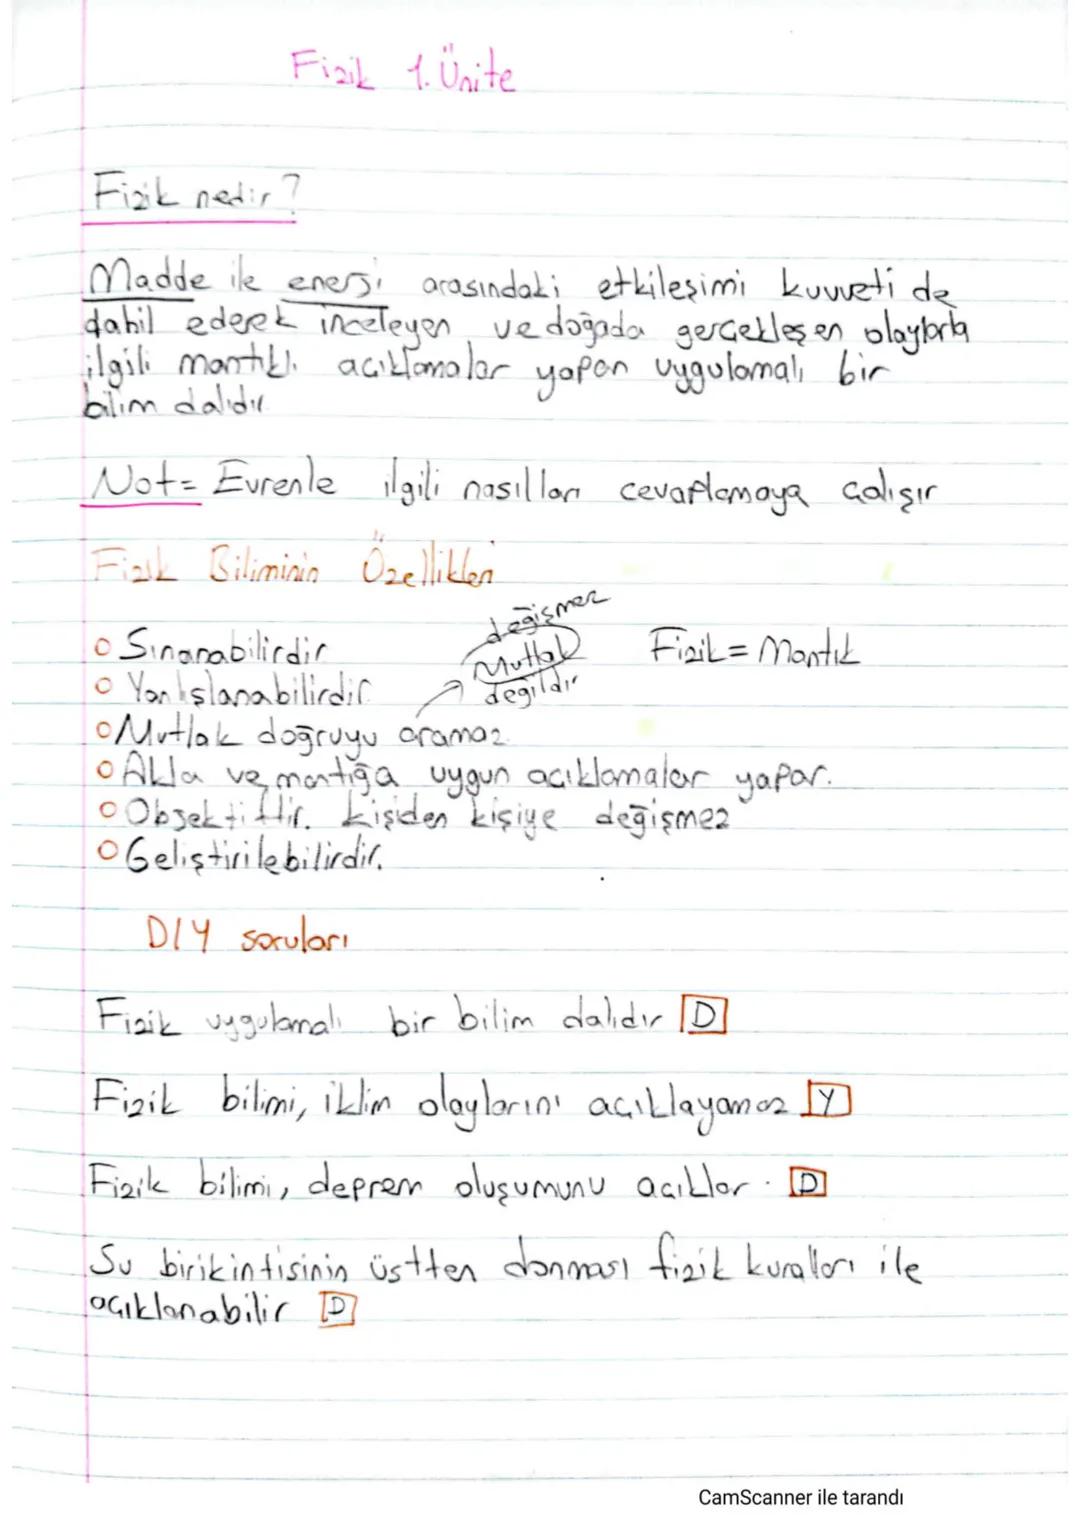 Fizik 1. Ünite
Fizik nedir?
Madde ile enerji arasındaki etkileşimi kuvveti de
dahil ederek inceleyen ve doğada gerçekleşen olaylarla
ilgili mantıklı açıklamalar yapan uygulamalı bir
bilim dalıdır.
Not= Evrenle ilgili nasılları cevaplamaya çalışır
Fizik Biliminin Özellikleri
o Sınanabilirdir
değişmez
Mutlak
değildir
Fizik = Mantık
o Yanlışlanabilirdir.
o Mutlak doğruyu aramaz.
o Akla ve mantığa uygun açıklamalar yapar.
o Objektiftir. Kişiden kişiye değişmez
o Geliştirilebilirdir.
D/Y soruları
Fizik uygulamalı bir bilim dalıdır D
Fizik bilimi, iklim olaylarını açıklayamaz Y
Fizik bilimi, deprem oluşumunu açıklar. D
Su birikintisinin üstten donması fizik kuralları ile
açıklanabilir D
CamScanner ile tarandı